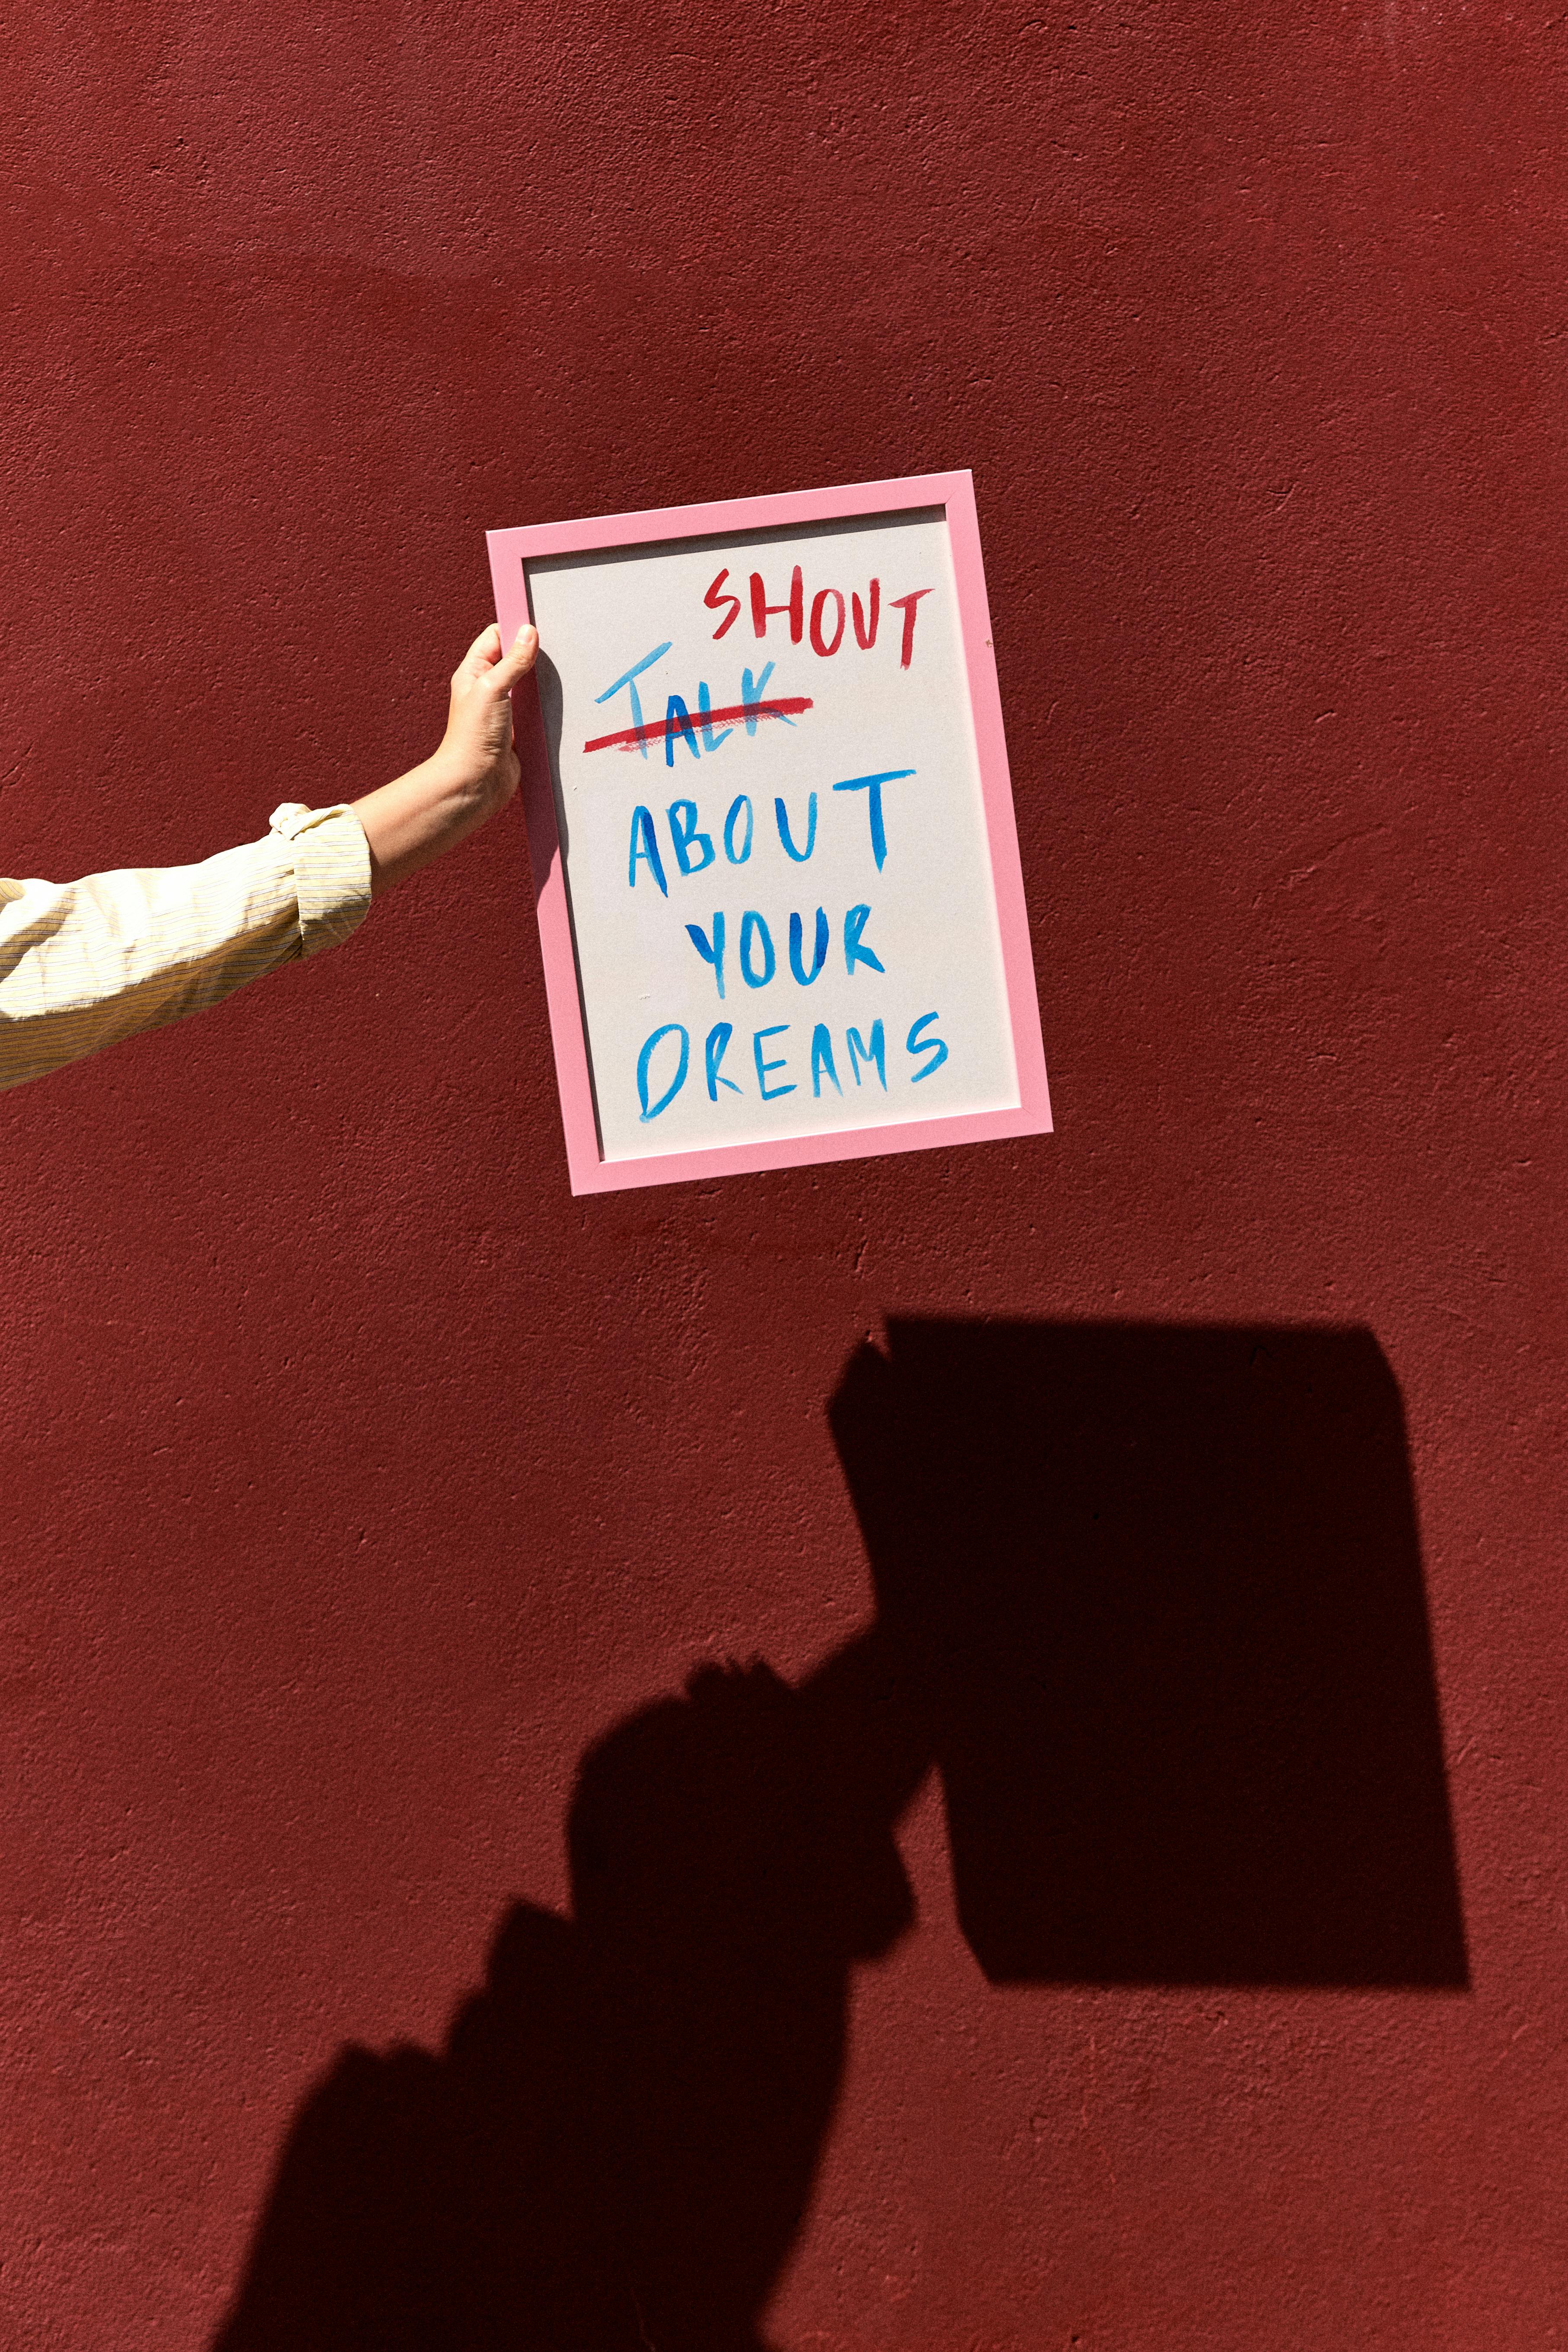 SHOUT
TALK
ABOUT
YOUR
DREAMS